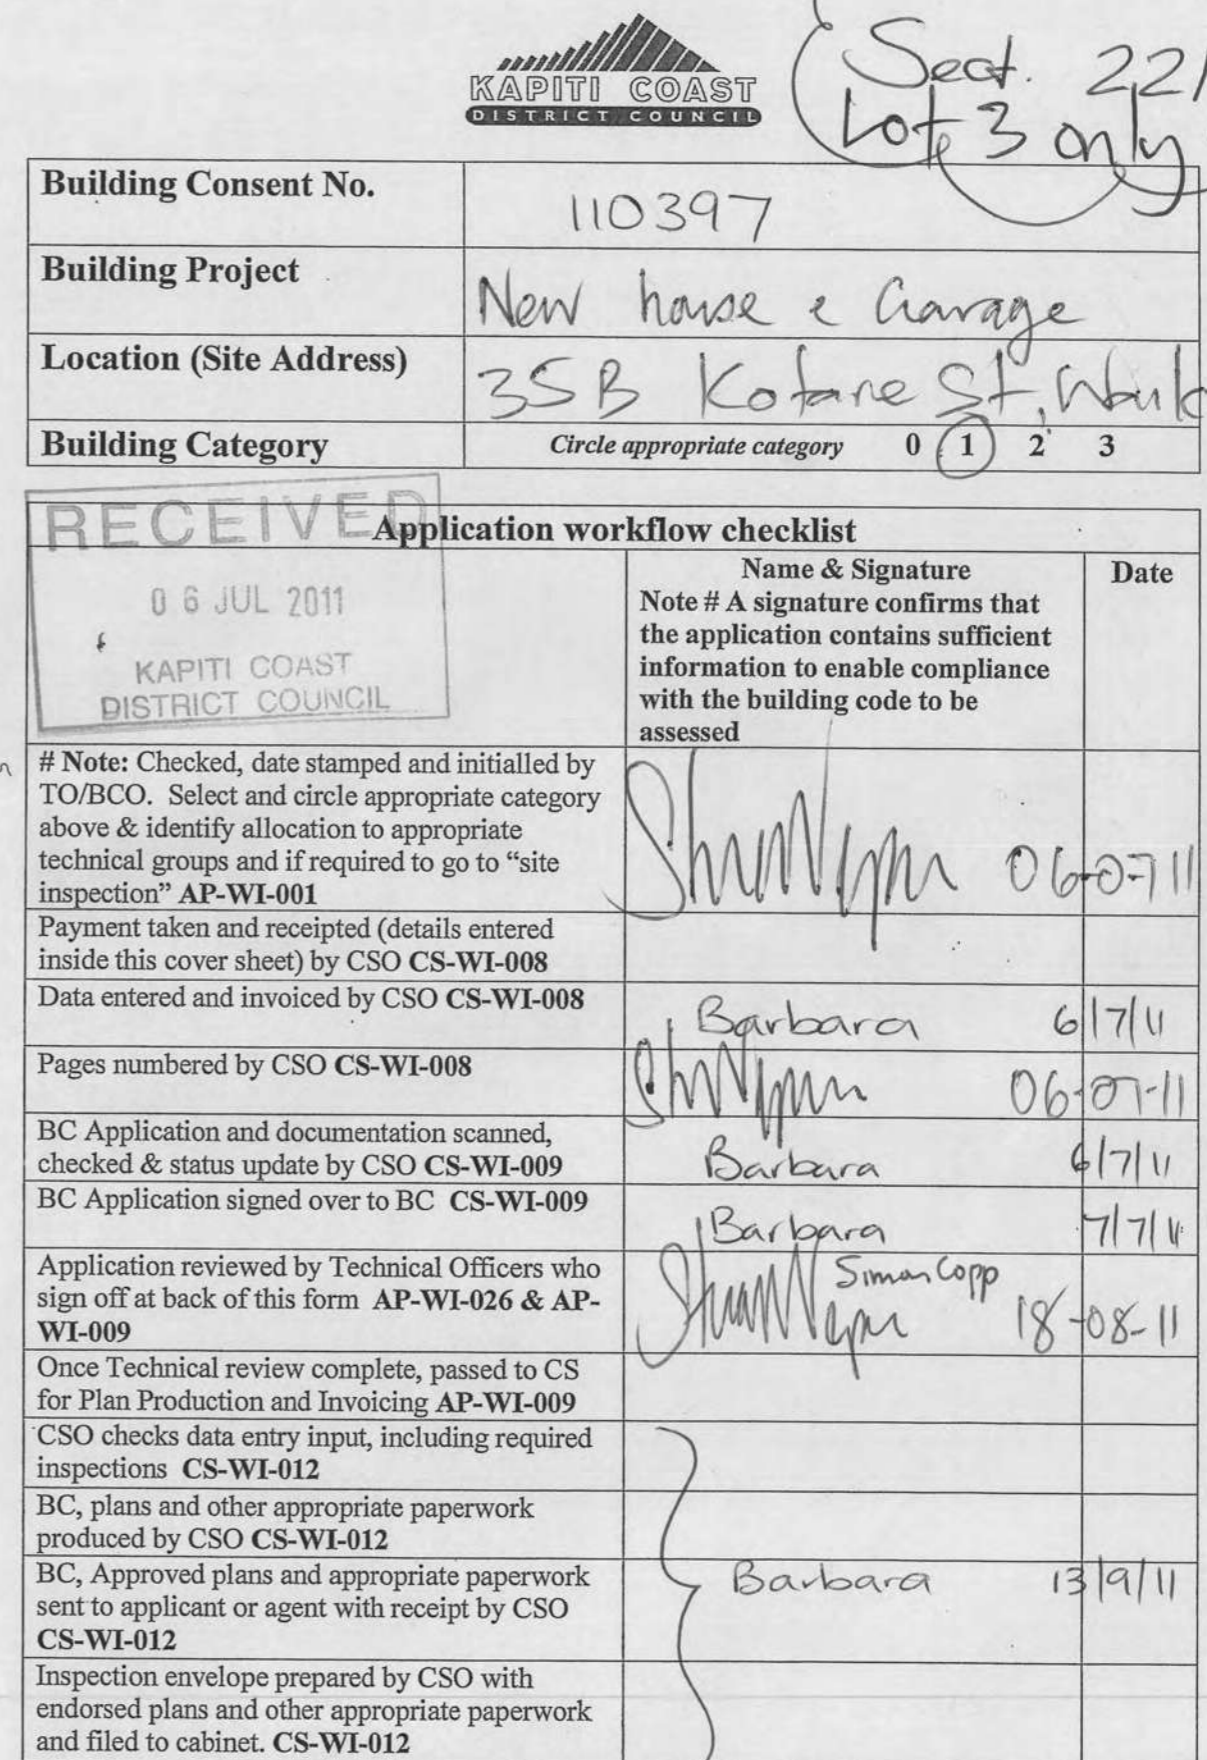 Sect. 221
Lot 3 only
KAPITI COAST
DISTRICT COUNCIL
Building Consent No.
110397
Building Project
New house & Garage
Location (Site Address)
35B Kotare St,
Building Category
Circle appropriate category 0 1 2 3
RECEIVED
06 JUL 2011
KAPITI COAST
DISTRICT COUNCIL
Application workflow checklist
Name & Signature
Note # A signature confirms that
the application contains sufficient
information to enable compliance
with the building code to be
assessed
Date
# Note: Checked, date stamped and initialled by
TO/BCO. Select and circle appropriate category
above & identify allocation to appropriate
technical groups and if required to go to “site
inspection” AP-WI-001
06-07 11
Payment taken and receipted (details entered
inside this cover sheet) by CSO CS-WI-008
Data entered and invoiced by CSO CS-WI-008
Barbara 6/7/11
Pages numbered by CSO CS-WI-008
06-07-11
BC Application and documentation scanned,
checked & status update by CSO CS-WI-009
Barbara 6/7/11
BC Application signed over to BC CS-WI-009
Barbara 7/7/11
Application reviewed by Technical Officers who
sign off at back of this form AP-WI-026 & AP-
WI-009
Simon Copp
18-08-11
Once Technical review complete, passed to CS
for Plan Production and Invoicing AP-WI-009
CSO checks data entry input, including required
inspections CS-WI-012
BC, plans and other appropriate paperwork
produced by CSO CS-WI-012
BC, Approved plans and appropriate paperwork
sent to applicant or agent with receipt by CSO
CS-WI-012
Barbara 13/9/11
Inspection envelope prepared by CSO with
endorsed plans and other appropriate paperwork
and filed to cabinet. CS-WI-012